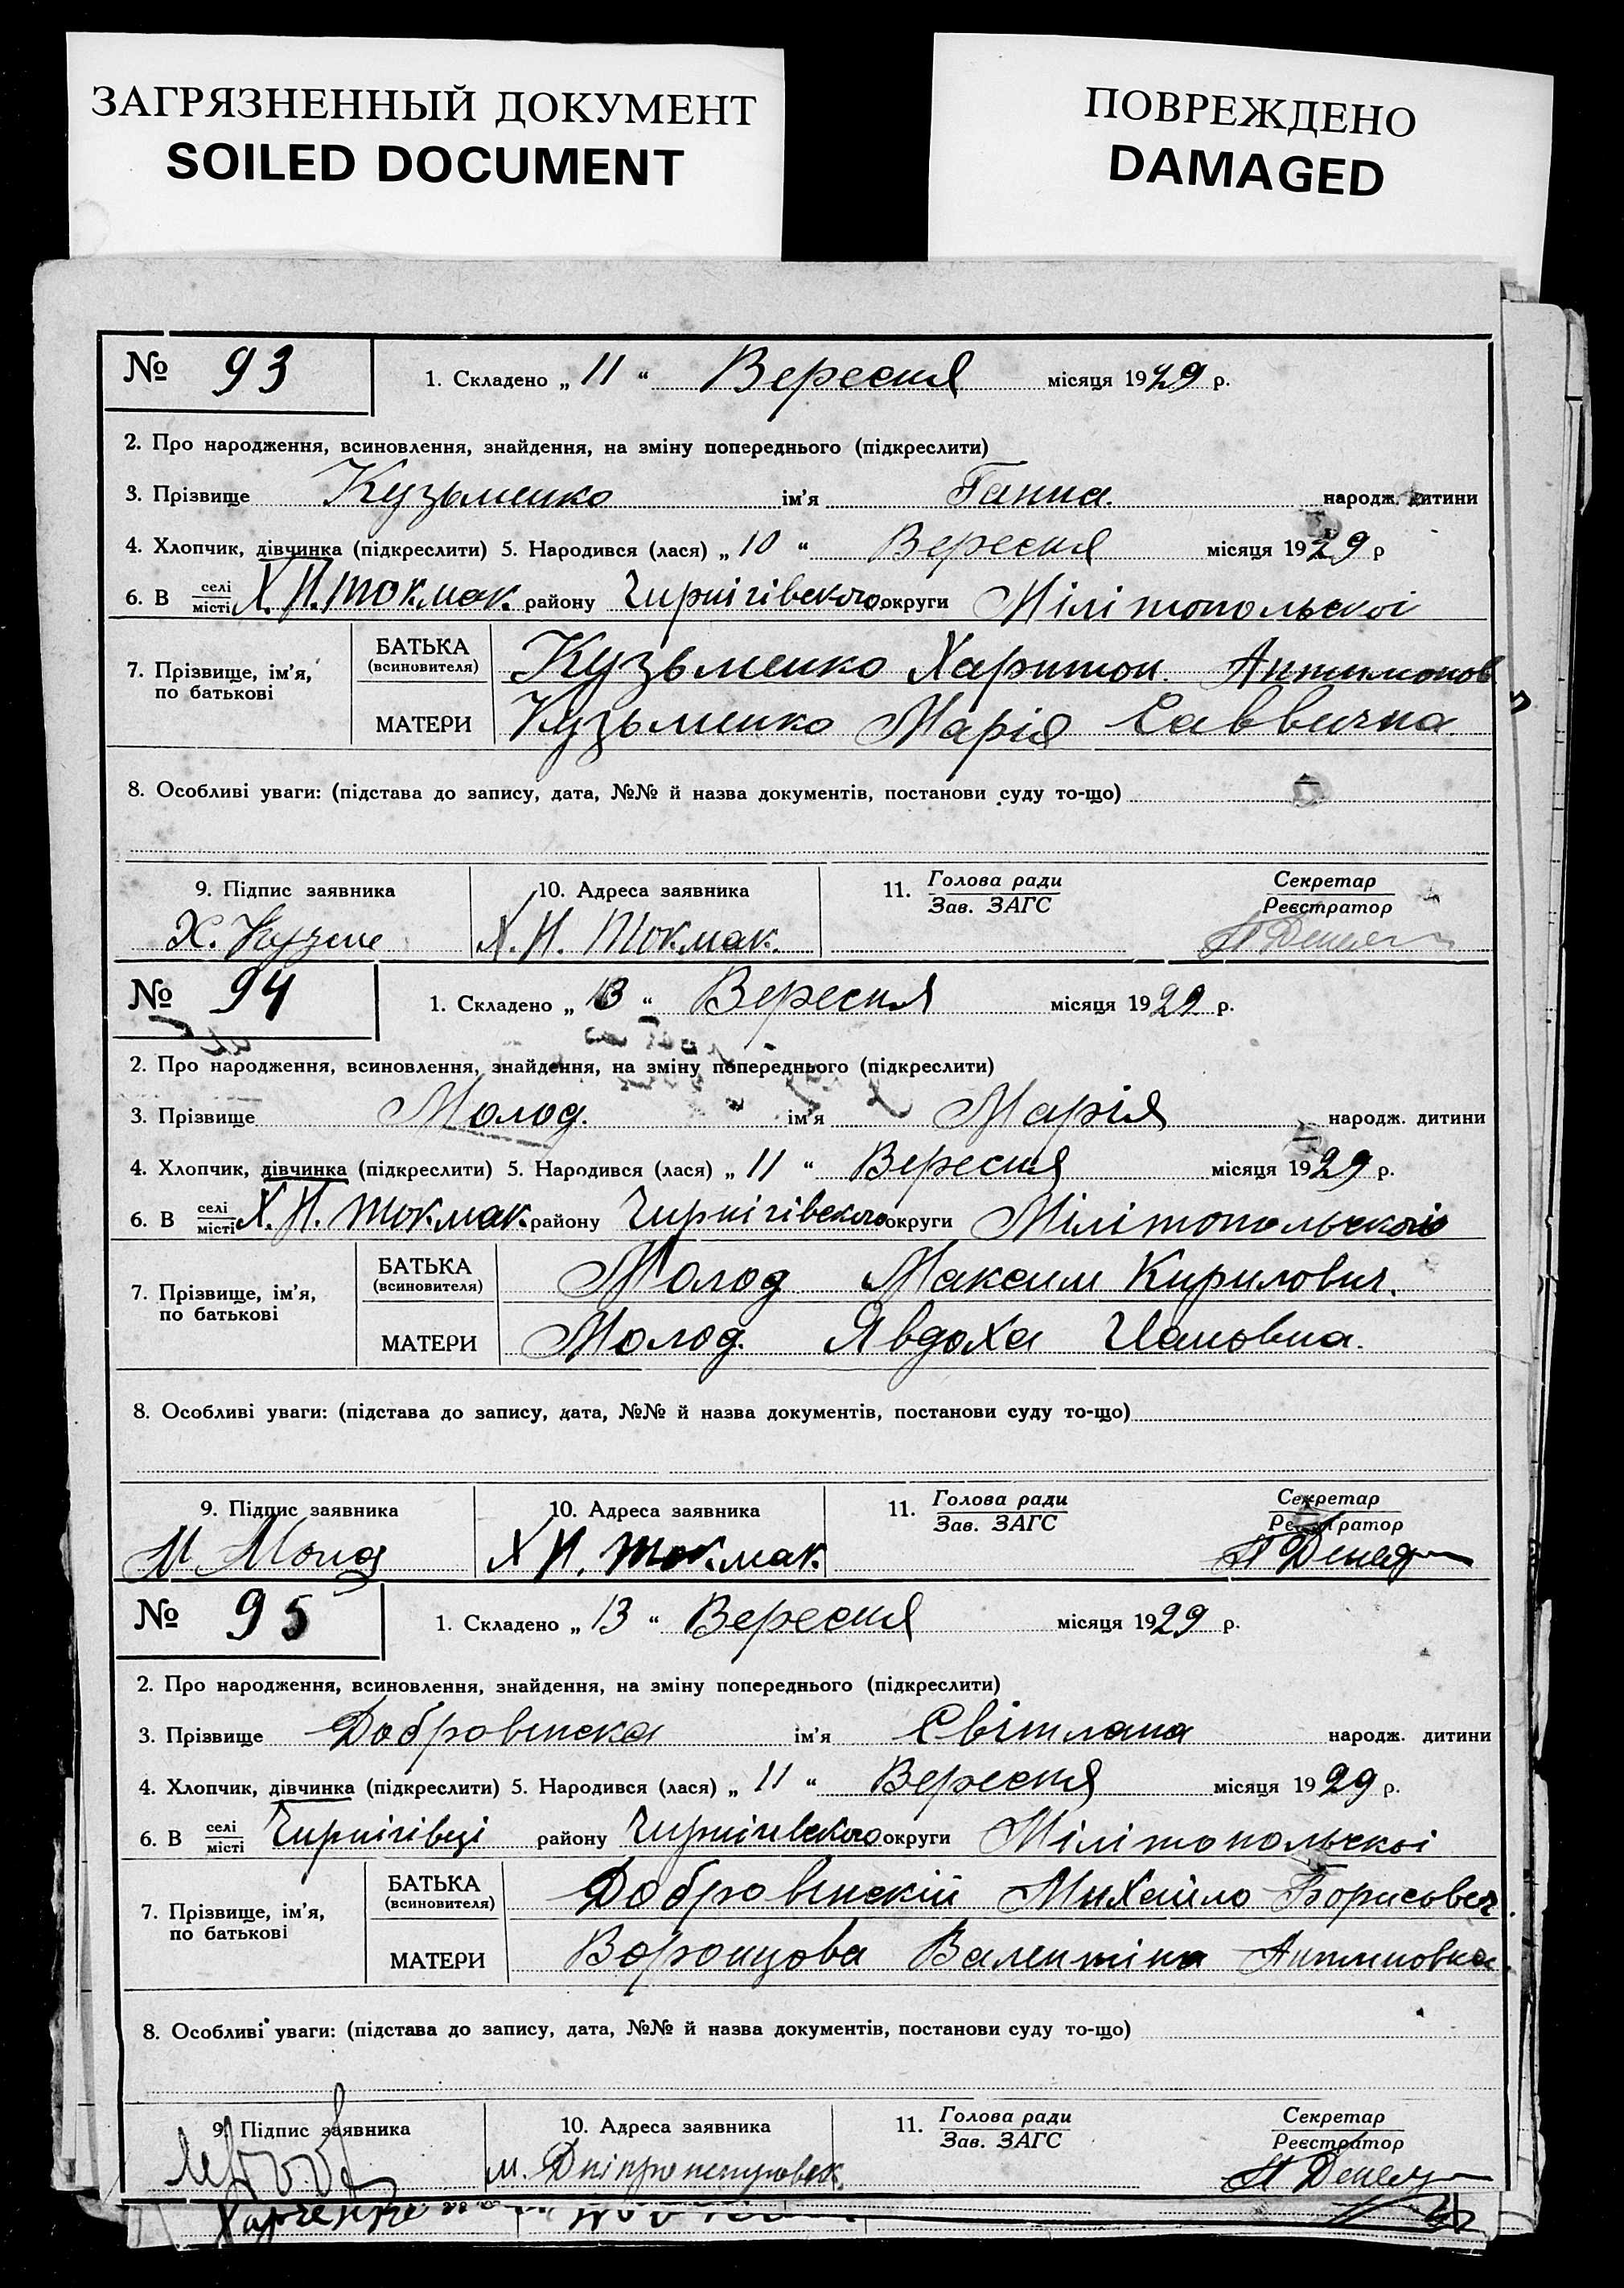 ЗАГРЯЗНЕННЫЙ ДОКУМЕНТ
SOILED DOCUMENT
ПОВРЕЖДЕНО
DAMAGED
№ 93 1. Складено „ 11 “ Вересня місяця 1929 р.
2. Про народження, всиновлення, знайдення, на зміну попереднього (підкреслити)
3. Прізвище Кузьменко ім’я Ганна. народж. дитини
4. Хлопчик, дівчинка (підкреслити) 5. Народився (лася) „ 10 “ Вересня місяця 1929 р
6. В селі місті Х. Н. Токмак. району Чирнігівського округи Мілітопольскоі
7. Прізвище, ім’я, по батькові БАТЬКА (всиновителя) Кузьменко Харитон. Антимонов
МАТЕРИ Кузьменко Марія Саввична
8. Особливі уваги: (підстава до запису, дата, №№ й назва документів, постанови суду то-що)
9. Підпис заявника 10. Адреса заявника 11. Голова ради Зав. ЗАГС Секретар Реєстратор
Х. Кузме Х. Н. Токмак.
№ 94 1. Складено „ 13 “ Вересня місяця 1929 р.
2. Про народження, всиновлення, знайдення, на зміну попереднього (підкреслити)
3. Прізвище Молод. ім’я Марія народж. дитини
4. Хлопчик, дівчинка (підкреслити) 5. Народився (лася) „ 11 “ Вересня місяця 1929 р.
6. В селі місті Х. Н. Токмак. району Чирнігівського округи Мілітопольскоі
7. Прізвище, ім’я, по батькові БАТЬКА (всиновителя) Молод Максим Кирилович.
МАТЕРИ Молод. Явдоха
8. Особливі уваги: (підстава до запису, дата, №№ й назва документів, постанови суду то-що)
9. Підпис заявника 10. Адреса заявника 11. Голова ради Зав. ЗАГС Секретар Реєстратор
М Молод Х Н. Токмак.
№ 95 1. Складено „ 13 “ Вересня місяця 1929 р.
2. Про народження, всиновлення, знайдення, на зміну попереднього (підкреслити)
3. Прізвище Добровинска ім’я Світлана народж. дитини
4. Хлопчик, дівчинка (підкреслити) 5. Народився (лася) „ 11 “ Вересня місяця 1929 р.
6. В селі місті Чирнігівці району Чирнігівського округи Мілітопольскоі
7. Прізвище, ім’я, по батькові БАТЬКА (всиновителя) Добровинский Михайло Борисович.
МАТЕРИ Воронцова Валентіна Антиповна.
8. Особливі уваги: (підстава до запису, дата, №№ й назва документів, постанови суду то-що)
9. Підпис заявника 10. Адреса заявника 11. Голова ради Зав. ЗАГС Секретар Реєстратор
м. Дніпропетровск.